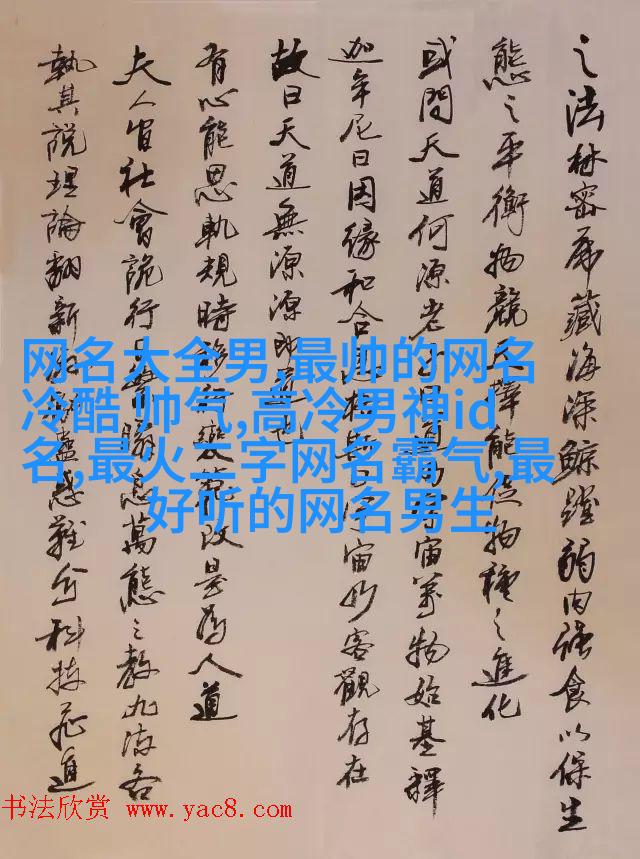 之法林密虎藏海深鯨躍弱肉强食以保生
態之平衡物競天擇能促物種之進化
或問天道何源老子曰道為宇宙萬物始基釋
迦牟尼曰因緣和合宇宙妙客觀存在
故曰天道無源源即
有心能思軌規時移變範改是為人道
夫人皆社會詭行萬態之教九流各
執其說理論翻新蠱惑難分科技
网名大全男,最帅的网名
冷酷 帅气,高冷男神id
名,最火二字网名霸气,最
好听的网名男生
书法欣赏 www.yac8.com